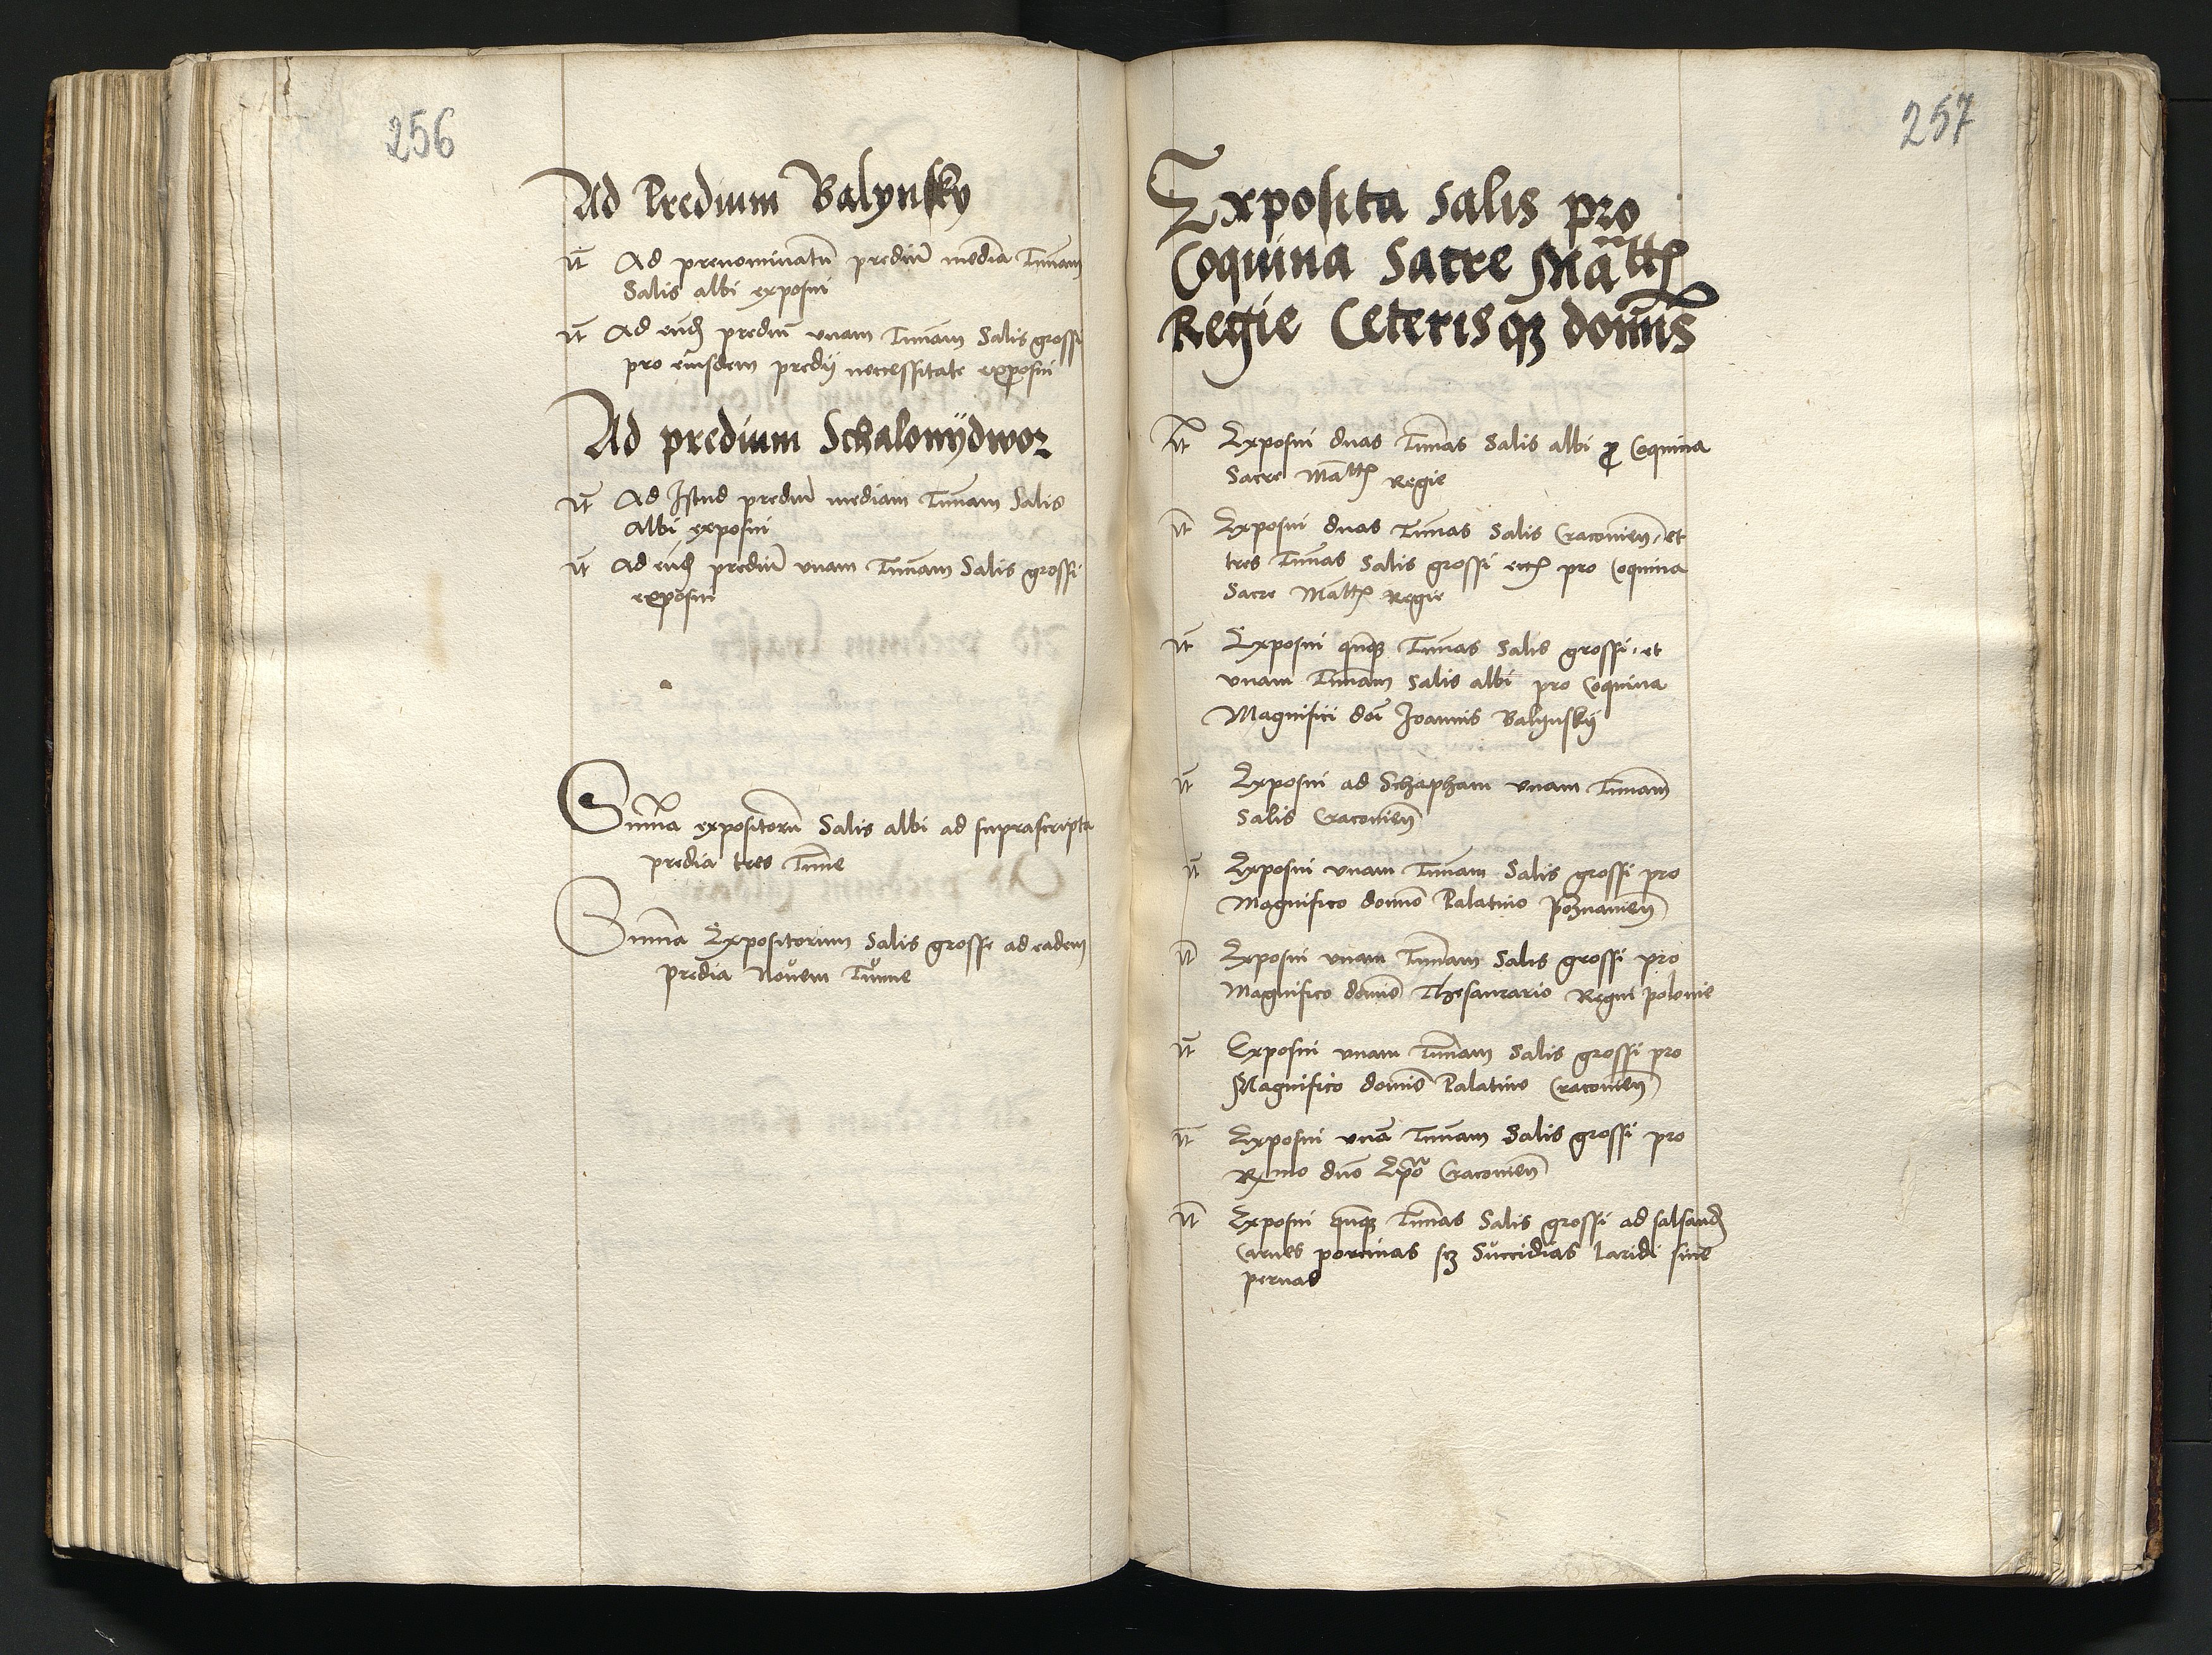 256
Ad Predium Balynsky
It Ad prenominatū prediū mediā Tunnam
Salis albi exposui
It Ad eūd prediū vnam Tunnam Salis grossi
pro eiusdem predij necessitate exposui
Ad predium Schalonÿdwor
It Ad Istud prediū mediam Tunnam Salis
Albi exposui
It Ad eūd prediū vnam Tunnam Salis grossi
exposui
Summa expositorū Salis albi ad suprascripta
predia tres Tunne
Summa Expositorum Salis grossi ad eadem
predia Nouem Tunne
257
Exposita Salis pro
Coquina Sacre Mattis
Regie Ceterisqz domis
It Exposui duas Tunnas Salis albi ꝓ Coquina
Sacre Mattis Regie
It Exposui duas Tunnas Salis Cracouien̄ et
tres Tunnas Salis grossi pro Coquina
Sacre Mattis Regie
It Exposui quinqz Tunnas Salis grossi et
vnam Tunnam Salis albi pro Coquina
Magnifici doī Joannis Balynskÿ
It Exposui ad Schapham vnam Tunnam
Salis Cracouien̄
It Exposui vnam Tunnam Salis grossi pro
Magnifico domīo Palatino Poznanien̄
It Exposui vnam Tunnam Salis grossi pro
Magnifico domīo Thesaurario Regni Polonie
It Exposui vnam Tunnam Salis grossi pro
Magnifico domīo Palatino Cracouien̄
It Exposui vnā Tunnam Salis grossi pro
Rmo dno Epo Cracouien̄
It Exposui quinqz Tunnas Salis grossi ad salsand
Carnes porcinas sz Succidias laridi siue
pernas